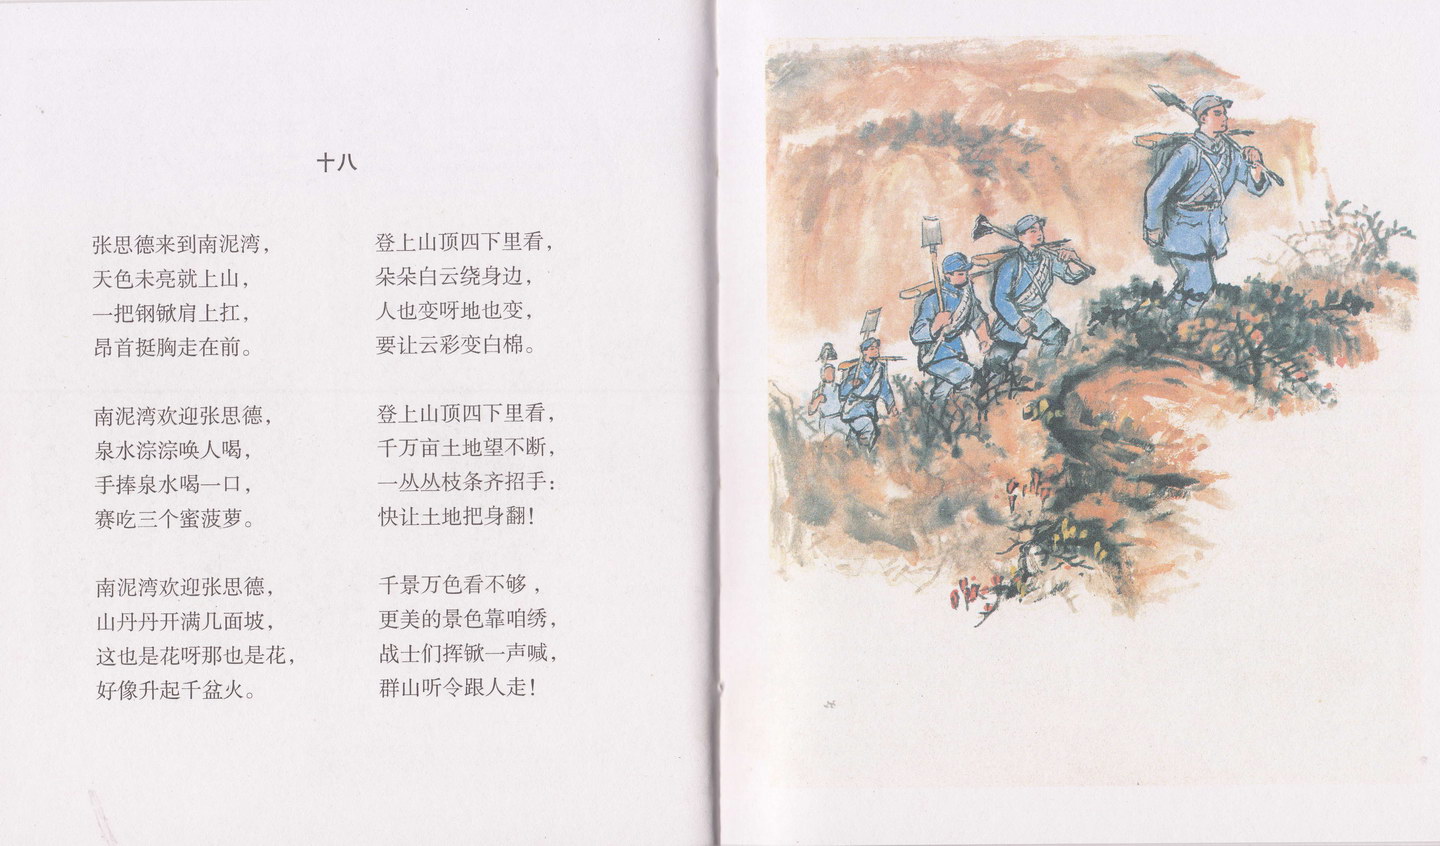 十八
张思德来到南泥湾，
天色未亮就上山，
一把钢锨肩上扛，
昂首挺胸走在前。
南泥湾欢迎张思德，
泉水淙淙唤人喝，
手捧泉水喝一口，
赛吃三个蜜菠萝。
南泥湾欢迎张思德，
山丹丹开满几面坡，
这也是花呀那也是花，
好像升起千盆火。
登上山顶四下里看，
朵朵白云绕身边，
人也变呀地也变，
要让云彩变白棉。
登上山顶四下里看，
千万亩土地望不断，
一丛丛枝条齐招手：
快让土地把身翻！
千景万色看不够，
更美的景色靠咱绣，
战士们挥锨一声喊，
群山听令跟人走！